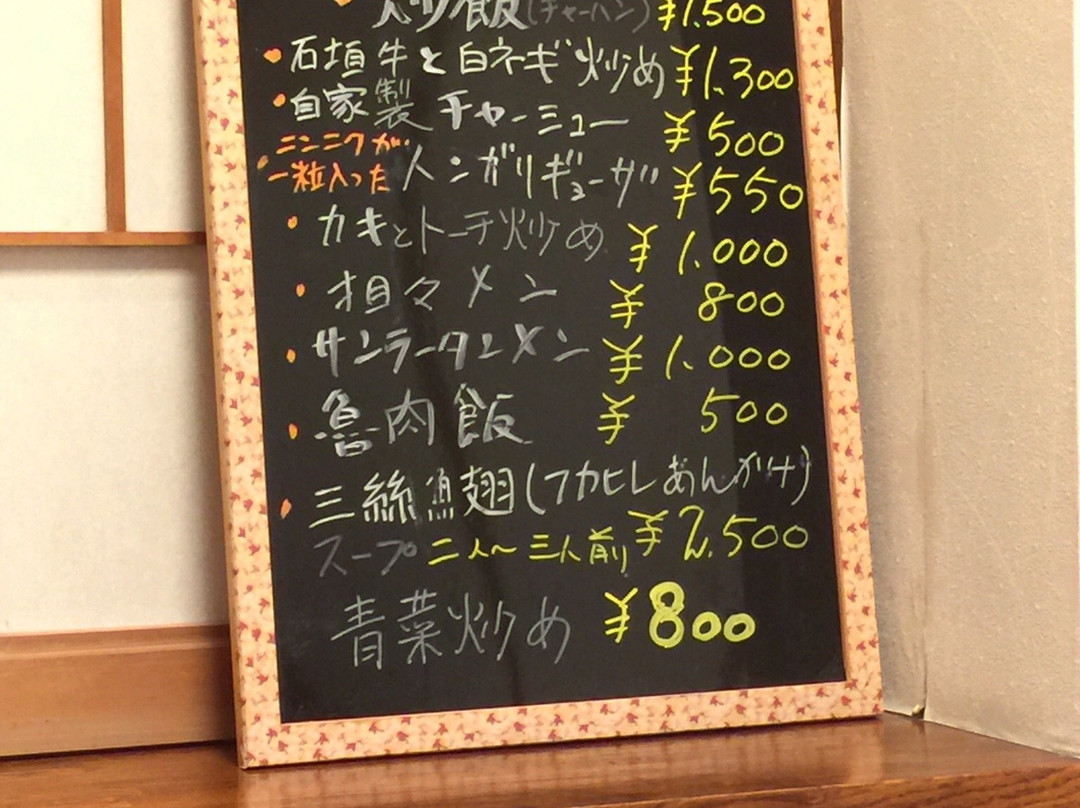 炒飯(チャーハン) ¥1,500
・石垣牛と白ネギ炒め ¥1,300
・自家製チャーシュー ¥500
・ニンニクが
一粒入ったジンガリギョーザ ¥550
・カキとトーチ炒め ¥1,000
・担々メン ¥800
・サンラータンメン ¥1,000
・魯肉飯 ¥500
・三絲魚翅(フカヒレあんかけ)
スープ 二人～三人前 ¥2,500
青菜炒め ¥800